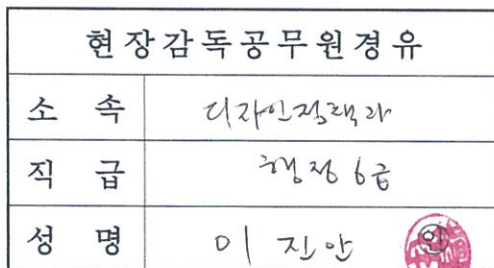 현장감독공무원경유
소 속 디자인정책과
직 급 행정6급
성 명 이진안 인